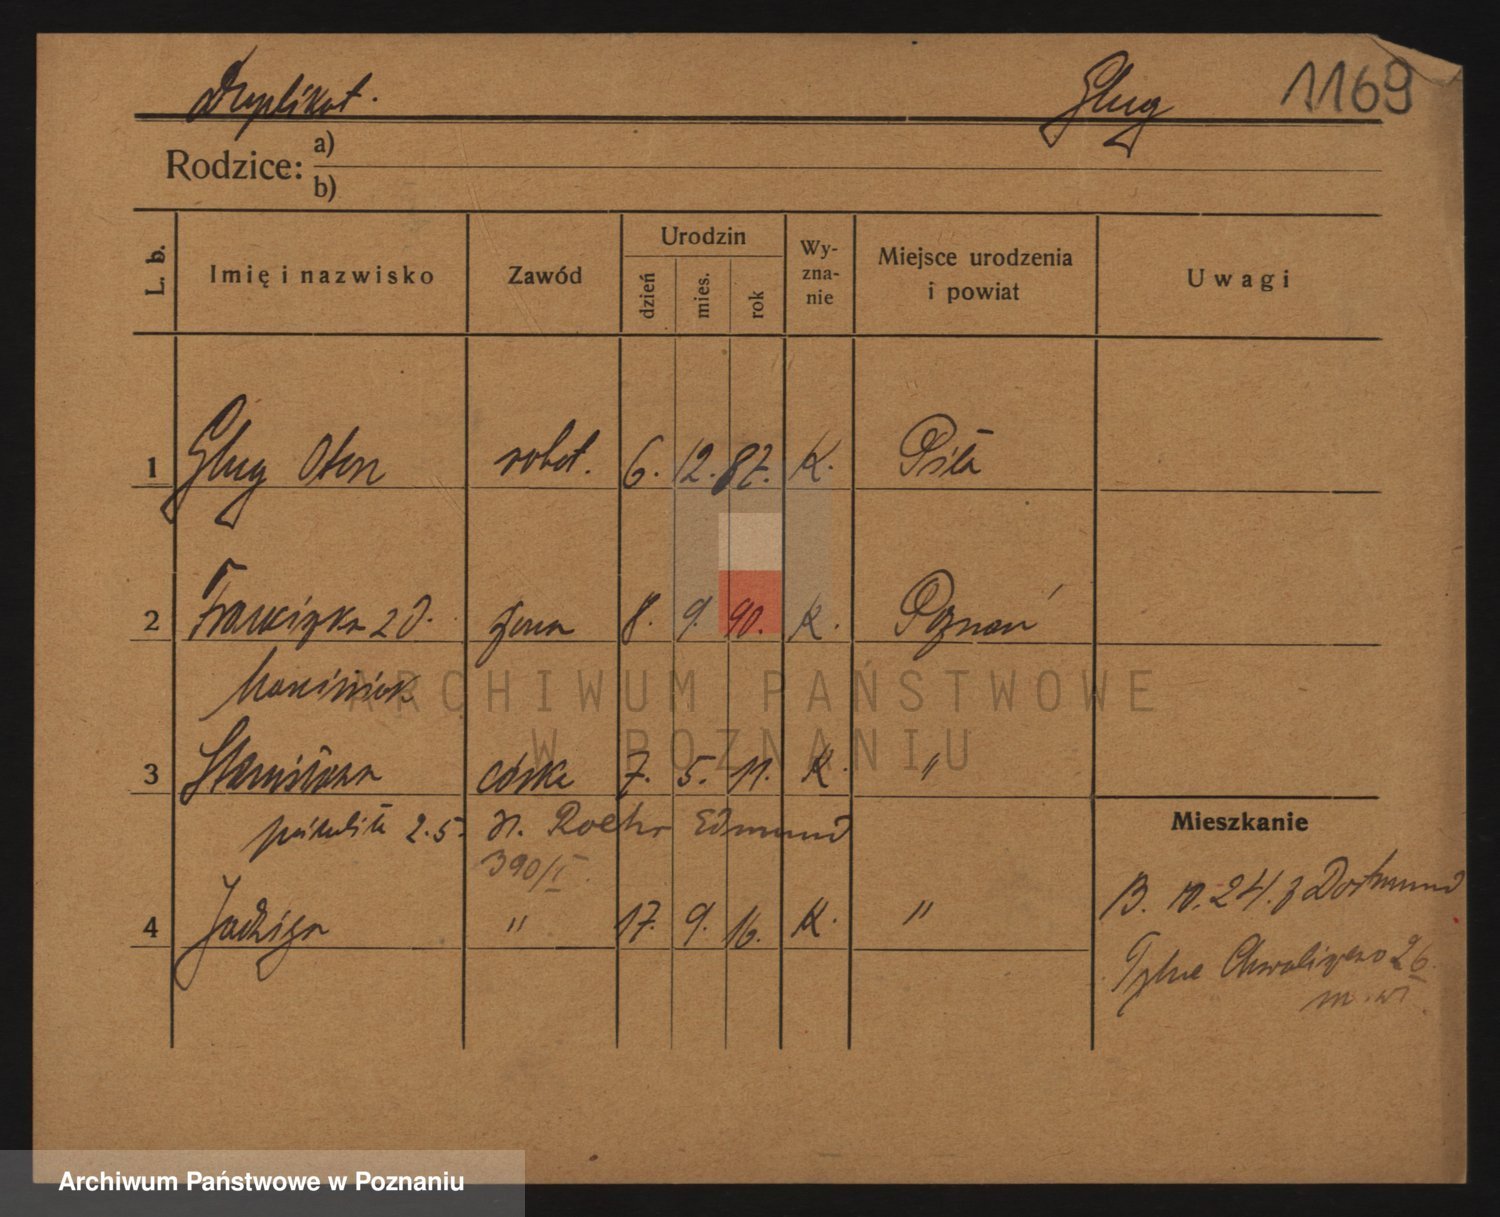 Duplikat.
Glug
1169
Rodzice:
a)
b)
L. b.
Imię i nazwisko
Zawód
Urodzin
dzień
mies.
rok
Wy-
zna-
nie
Miejsce urodzenia
i powiat
Uwagi
1 Glug Oton robot. 6. 12. 87. K. Piła
2 Franciszka z d. żona 8. 9. 90. K. Poznań
3 Stanisława córka 7. 5. 11. K. "
2.5. Roehr Edmund
390/II.
4 Jadwiga " 17. 9. 16. K. "
Mieszkanie
13. 10. 24. z Dortmund
Tylne Chwaliszewo 26
ARCHIWUM PAŃSTWOWE
W POZNANIU
Archiwum Państwowe w Poznaniu